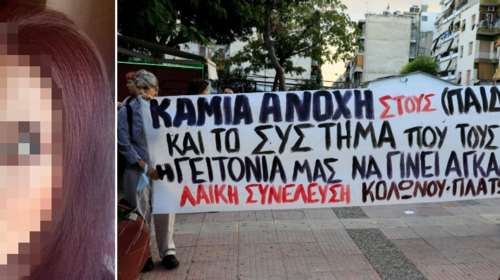 ΚΑΜΙΑ ΑΝΟΧΗ ΣΤΟΥΣ (ΠΑΙΔ
ΚΑΙ ΤΟ ΣΥΣΤΗΜΑ ΠΟΥ ΤΟΥΣ
Η ΓΕΙΤΟΝΙΑ ΜΑΣ ΝΑ ΓΙΝΕΙ ΑΓΚΑ
ΛΑΙΚΗ ΣΥΝΕΛΕΥΣΗ ΚΟΛΩΝΟΥ-ΠΛΑΤ